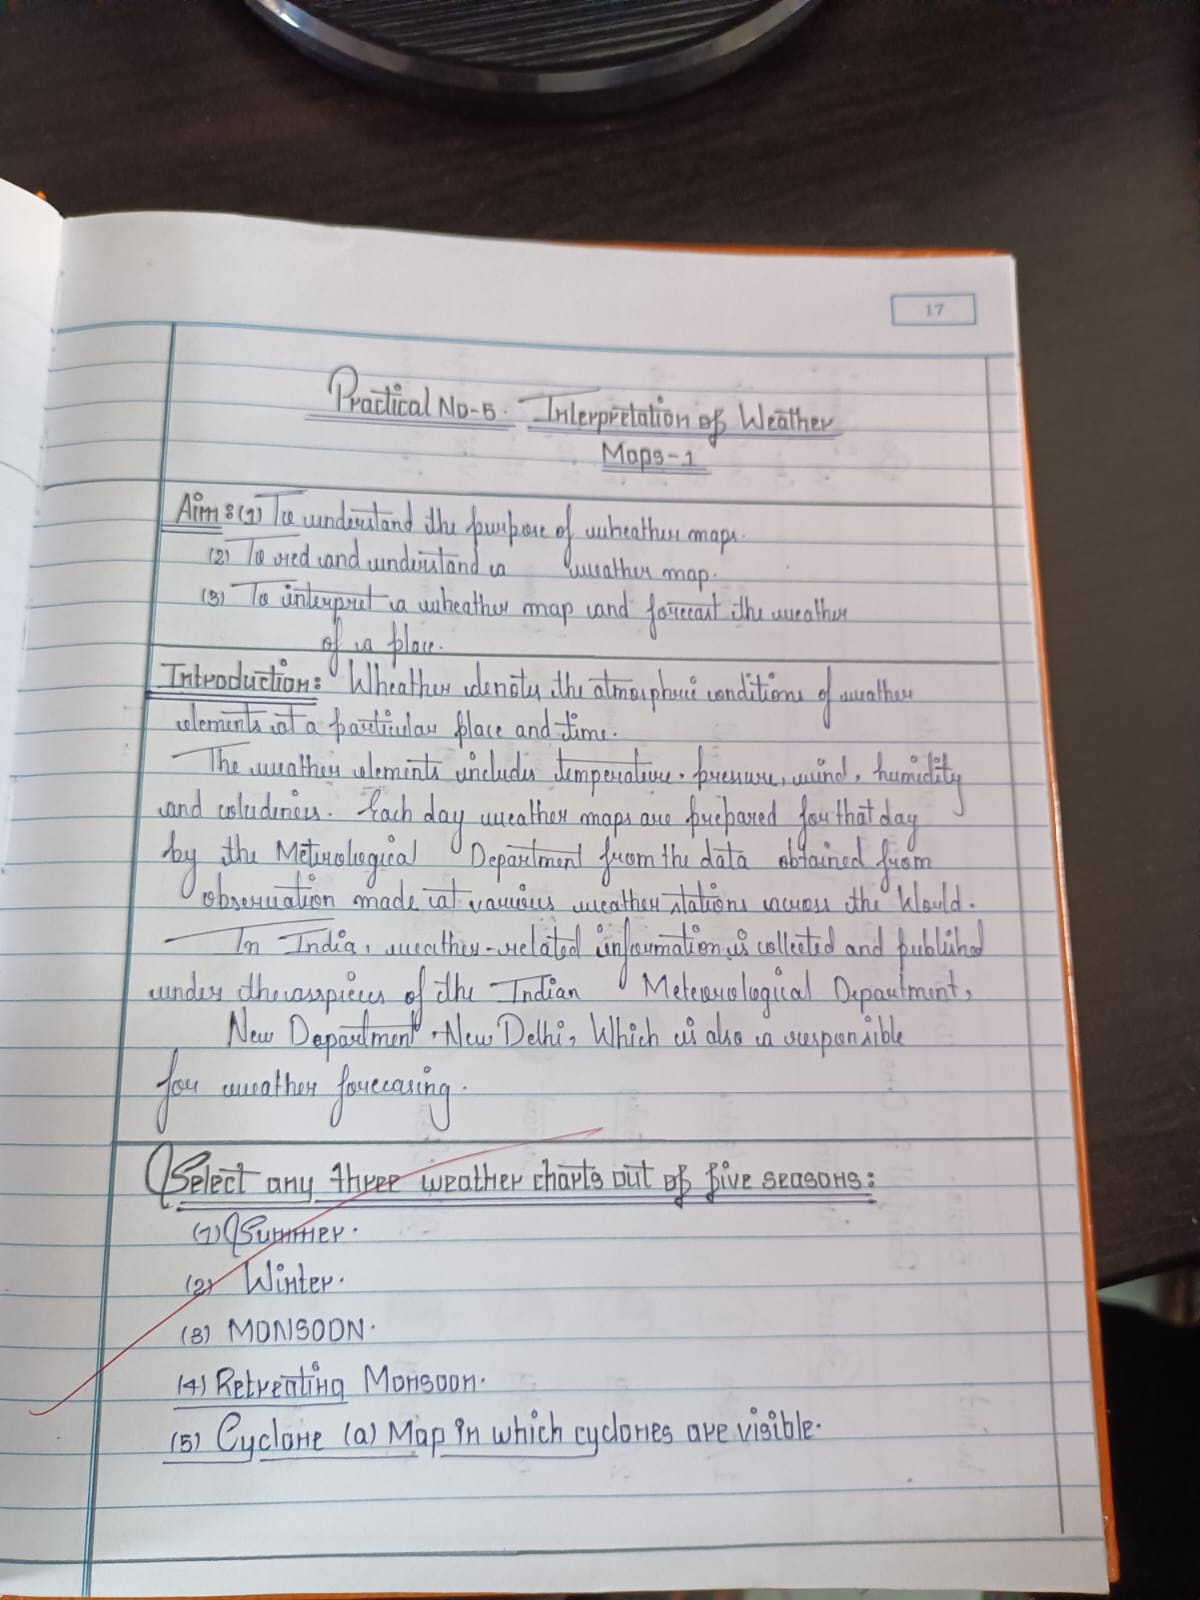 17
Practical No-5. Interpretation of Weather
Maps-1
Aim:(1) To understand the purpose of wheather maps.
(2) To red and understand a weather map.
(3) To interpret a wheather map and forecast the weather
of a place.
Introduction: Wheather denotes the atmospheric conditions of weather
elements at a particular place and time.
The weather elements includes temperature, pressure, wind, humidity
and coludiness. Each day weather maps are prepared for that day
by the Meterological Department from the data obtained from
observation made at various weather stations across the World.
In India, weather-related information is collected and published
under the asspieces of the Indian Meteorological Department,
New Department, New Delhi, Which is also a responsible
for weather forecasing.
Select any three weather charts out of five seasons:
(1) Summer.
(2) Winter.
(3) MONSOON.
(4) Retreating Monsoon.
(5) Cyclone (a) Map in which cyclones are visible.